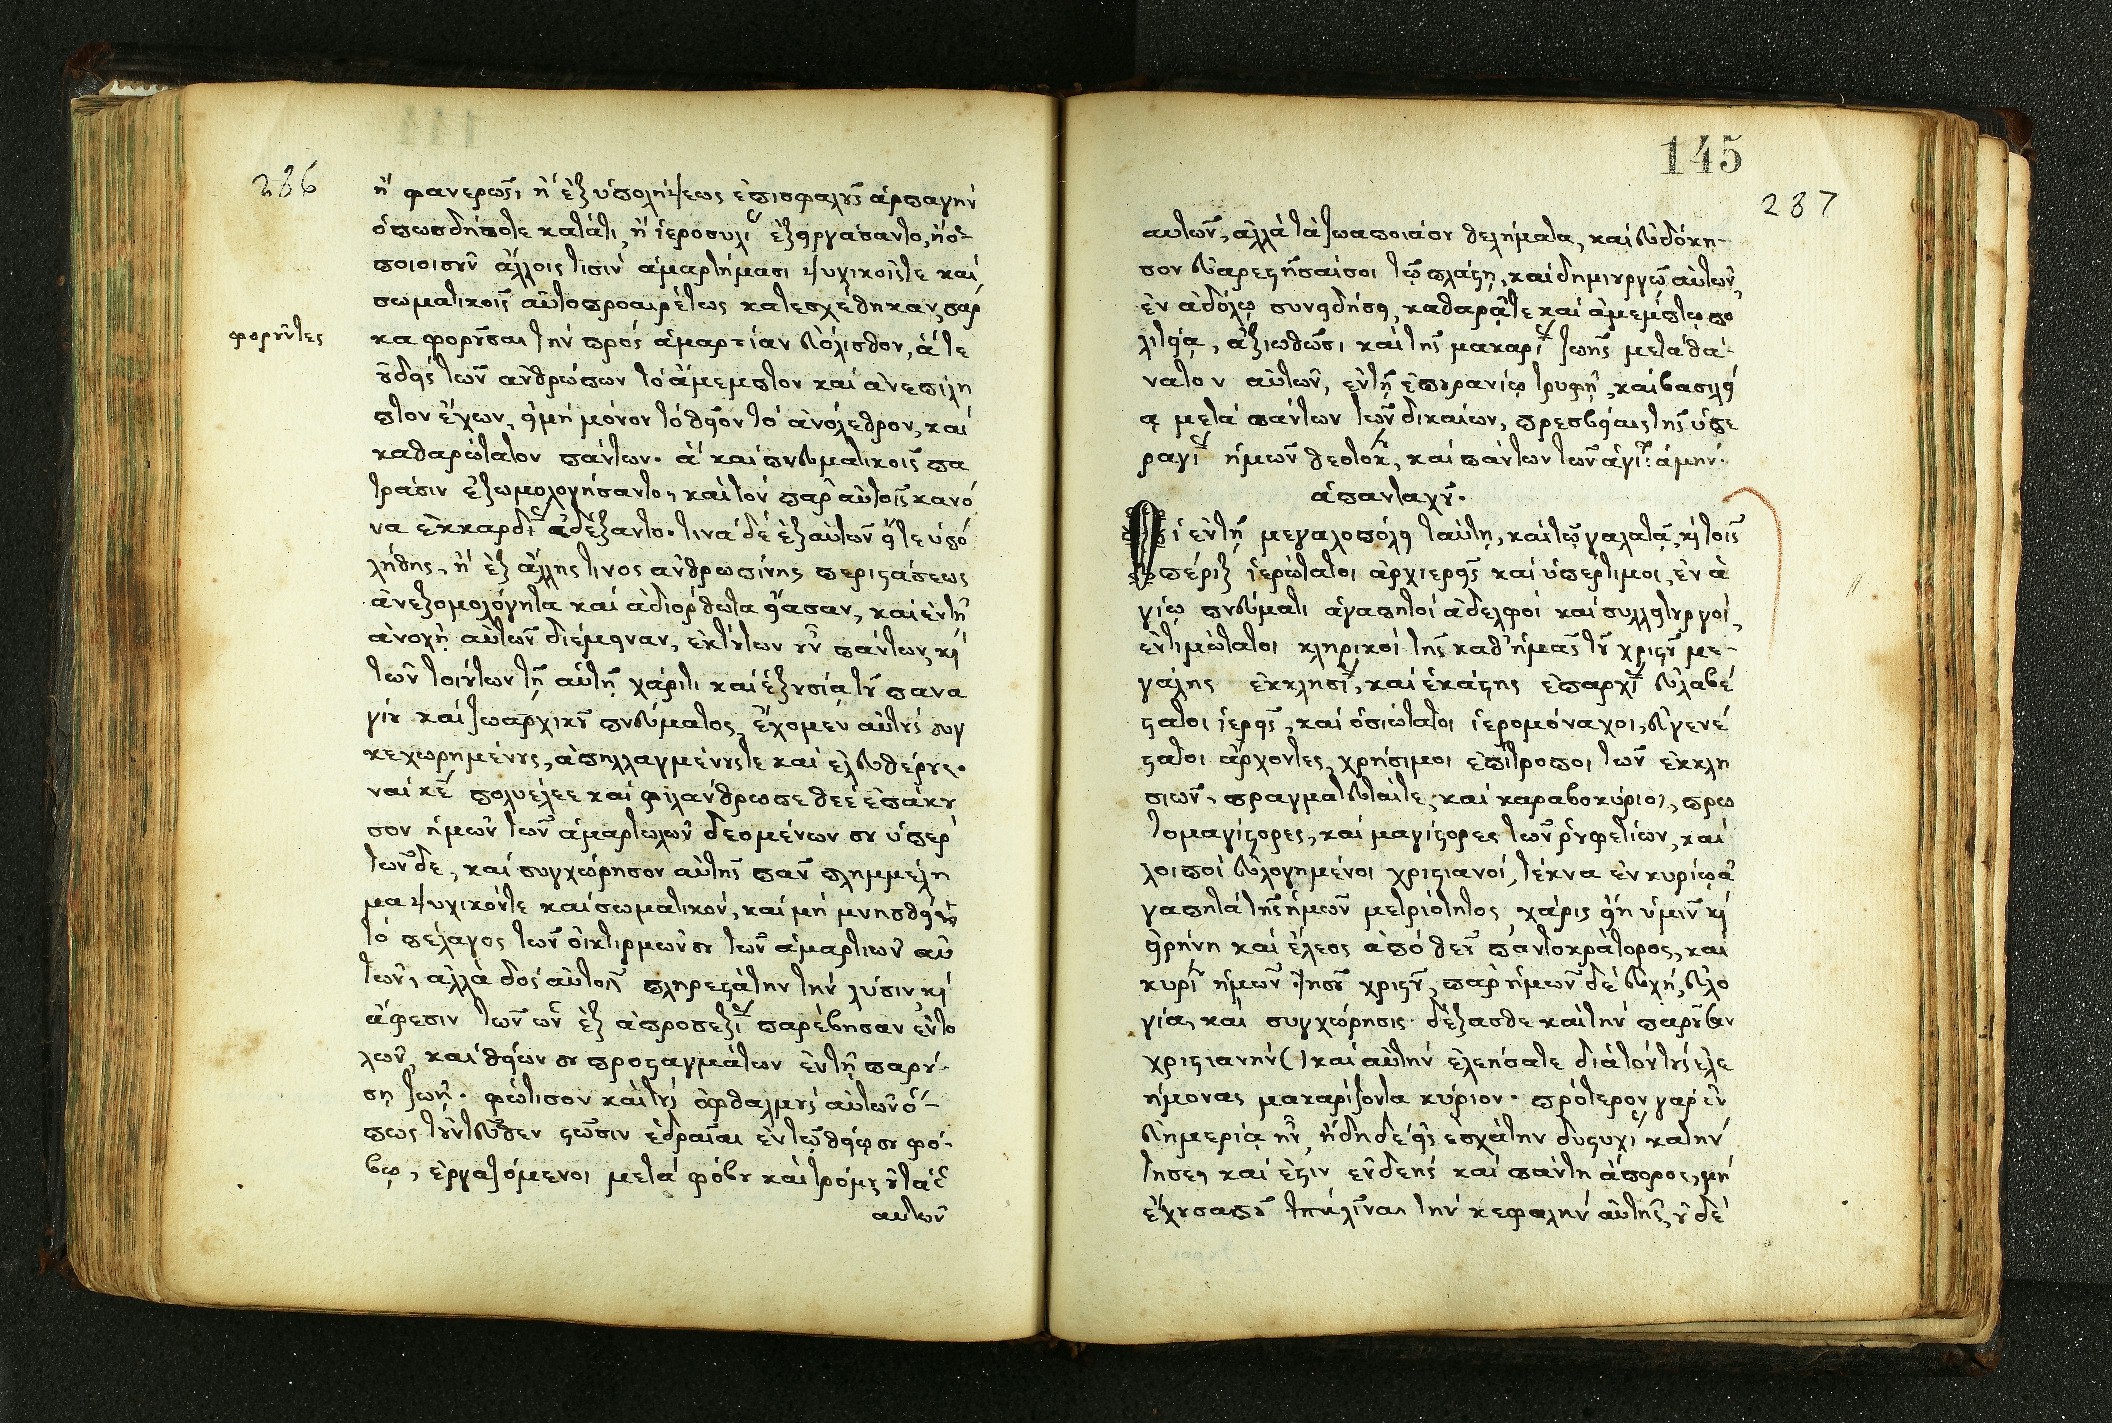 286
ἢ φανερῶς, ἢ ἐξ ὑπολήψεως ἐπισφαλοῦς ἁρπαγὴν
ὁπωσδήποτε κατάτι, ἢ ἱεροσυλί εἰργάσαντο, ἢ ὁ-
ποιοισοῦν ἄλλοις τισὶν ἁμαρτήμασι ψυχικοῖςτε καὶ
σωματικοῖς αὐτοπροαιρέτως κατεσχέθησαν, σάρ
φοροῦντες
κα φοροῦσαι τὴν πρὸς ἁμαρτίαν εὐόλισθον, ἅτε
οὐδεὶς τῶν ἀνθρώπων τὸ ἄμεμπτον καὶ ἀνεπίλη
πτον ἔχων, εἰμὴ μόνον τὸ θεῖον τὸ ἀνόλεθρον, καὶ
καθαρώτατον πάντων. ἃ καὶ πνευματικοῖς πα
τράσιν ἐξωμολογήσαντο, καὶ τὸν παρ' αὐτοῖς κανό
να ἐκκαρδί ἐδέξαντο. τινὰ δὲ ἐξ αὐτῶν εἴτε ὑπὸ
λήθης, ἢ ἐξ ἄλλης τινος ἀνθρωπίνης περιστάσεως
ἀνεξομολόγητα καὶ ἀδιόρθωτα εἴασαν, καὶ ἐν τῇ
ἀνοχῇ αὐτῶν διέμειναν, ἐκ τούτων οὖν πάντων, κὶ
τῶν τοιούτων τῇ αὐτῇ χάριτι καὶ ἐξουσίᾳ τοῦ πανα
γίου καὶ ζωαρχικοῦ πνεύματος, ἔχομεν αὐτοὺς συγ
κεχωρημένους, ἀπηλλαγμένους τε καὶ ἐλευθέρους.
ναί κε πολυέλεε καὶ φιλάνθρωπε θεὲ ἐπάκου
σον ἡμῶν τῶν ἁμαρτωλῶν δεομένων σου ὑπὲρ
τῶνδε, καὶ συγχώρησον αὐτῆς πᾶν πλημμέλη
μα ψυχικόντε καὶ σωματικόν, καὶ μὴ μνησθείη
τὸ πέλαγος τῶν οἰκτιρμῶν σου τῶν ἁμαρτιῶν αὐ
τῶν, ἀλλὰ δὸς αὐτοῖς πληρεστάτην τὴν λύσιν, κὶ
ἄφεσιν τῶν ὧν ἐξ ἀπροσεξί παρέβησαν ἐντο
λῶν, καὶ θείων σου προσταγμάτων ἐν τῇ παρού-
σῃ ζωῇ. φώτισον καὶ τοὺς ὀφθαλμοὺς αὐτῶν ὅ-
πως τοὐντεῦθεν στῶσιν ἑδραῖαι ἐν τῷ θείῳ σου φό-
βῳ, ἐργαζόμενοι μετὰ φόβου καὶ τρόμου οὐ τὰ ἑ
αυτῶν
145
287
αυτῶν, ἀλλὰ τὰ ζωαποιά σου θελήματα, καὶ εὐδόκη-
σον εὐαρεστῆσαί σοι τῷ πλάστῃ, καὶ δημιουργῷ αὐτῶν,
ἐν ἀδόλῳ συνειδήσει, καθαρᾷ τε καὶ ἀμέμπτῳ πο
λιτείᾳ, ἀξιωθῶσι καὶ τῆς μακαρί ζωῆς μετὰ θά-
νατον αὐτῶν, ἐν τῇ ἐπουρανίῳ τρυφῇ, καὶ βασιλεί
ᾳ μετὰ πάντων τῶν δικαίων, πρεσβείαις τῆς ὑπε
ραγί ἡμῶν θεοτόκ, καὶ πάντων τῶν ἁγί: ἀμήν.
ἁπανταχοῦ.
Οἱ ἐν τῇ μεγαλοπόλει ταύτῃ, καὶ τῷ γαλατᾷ, κὶ τοῖς
πέριξ ἱερώτατοι ἀρχιερεῖς καὶ ὑπέρτιμοι, ἐν ἁ
γίῳ πνεύματι ἀγαπητοὶ ἀδελφοὶ καὶ συλλειτουργοί,
ἐντιμώτατοι κληρικοὶ τῆς καθ' ἡμᾶς τοῦ χριστοῦ με-
γάλης ἐκκλησί, καὶ ἑκάστης ἐπαρχί εὐλαβέ
στατοι ἱερεῖς, καὶ ὁσιώτατοι ἱερομόναχοι, εὐγενέ
στατοι ἄρχοντες, χρήσιμοι ἐπίτροποι τῶν ἐκκλη
σιῶν, πραγματευταίτε, καὶ καραβοκύριοι, πρω
τομαγίστορες, καὶ μαγίστορες τῶν ῥουφετίων, καὶ
λοιποὶ εὐλογημένοι χριστιανοί, τέκνα ἐν κυρίῳ ἀ
γαπητὰ τῆς ἡμῶν μετριότητος χάρις εἴη ὑμῖν κὶ
εἰρήνη καὶ ἔλεος ἀπὸ θεοῦ παντοκράτορος, καὶ
κυρί ἡμῶν Ἰησοῦ χριστοῦ, παρ' ἡμῶν δὲ εὐχή, εὐλο
γία, καὶ συγχώρησις. δέξασθε καὶ τὴν παροῦσαν
χριστιανήν ( ) καὶ αὐτὴν ἐλεήσατε διὰ τὸν τοὺς ἐλε
ήμονας μακαρίζοντα κύριον. πρότερον γὰρ ἐν
εὐημερίᾳ ἦν, ἤδη δὲ εἰς ἐσχάτην δυστυχί κατήν
τησε, καὶ ἔστιν ἐνδεὴς καὶ πάντη ἄπορος, μὴ
ἔχουσα ποῦ κλῖναι τὴν κεφαλὴν αὐτῆς, οὐδὲ